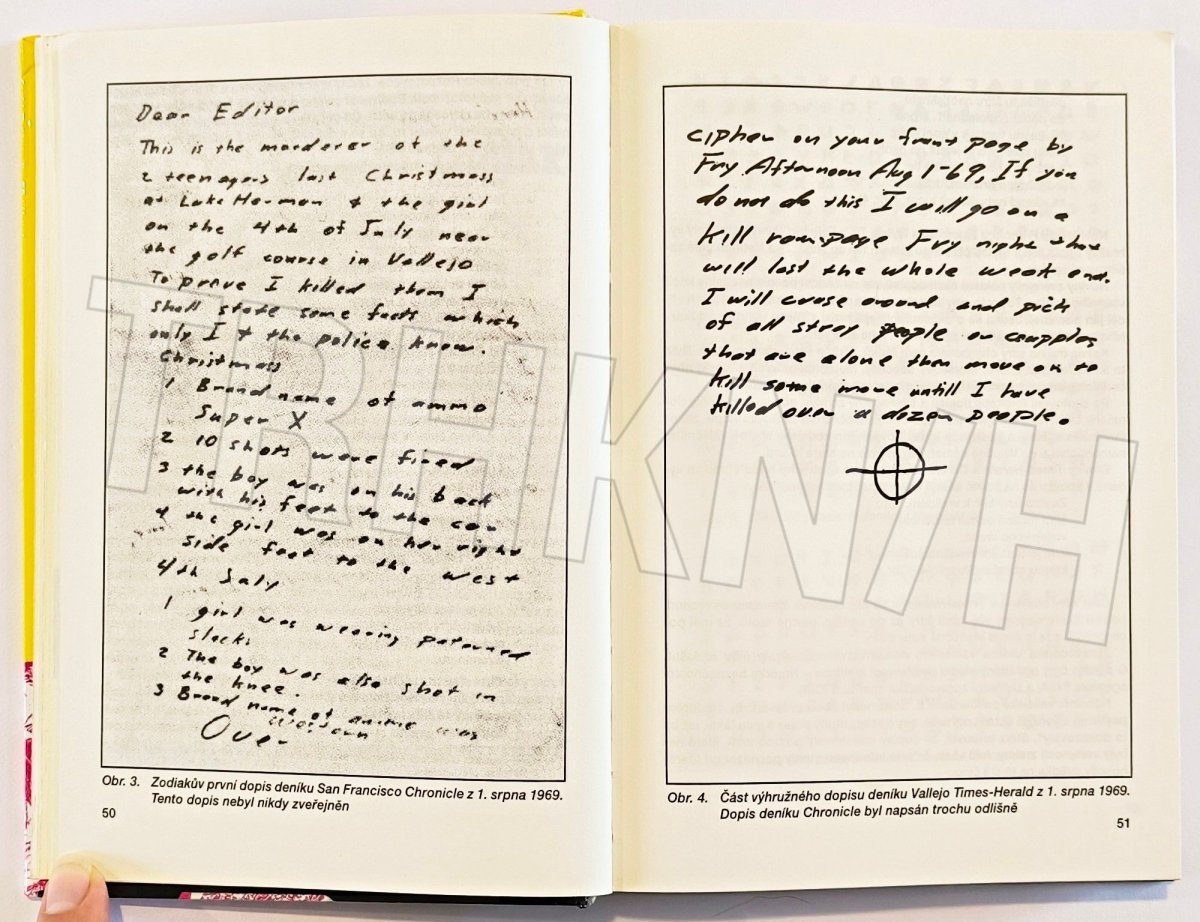 Dear Editor
This is the murderer of the
2 teenagers last Christmass
at Lake Herman & the girl
on the 4th of July near
the golf course in Vallejo
To prove I killed them I
shall state some facts which
only I & the police know.
Christmass
1 Brand name of ammo
Super X
2 10 shots were fired
3 the boy was on his back
with his feet to the car
4 the girl was on her right
side feet to the west
4th July
1 girl was wearing paterned
slacks
2 The boy was also shot in
the knee.
3 Brand name of ammo was
Western
Over
Obr. 3. Zodiakův první dopis deníku San Francisco Chronicle z 1. srpna 1969.
Tento dopis nebyl nikdy zveřejněn
50
cipher on your front page by
Fry Afternoon Aug 1-69, If you
do not do this I will go on a
kill rampage Fry night that
will last the whole week end.
I will cruse around and pick
of all stray people or coupples
that are alone then move on to
kill some more untill I have
killed over a dozen people.
Obr. 4. Část výhružného dopisu deníku Vallejo Times-Herald z 1. srpna 1969.
Dopis deníku Chronicle byl napsán trochu odlišně
51
TRHKNIH